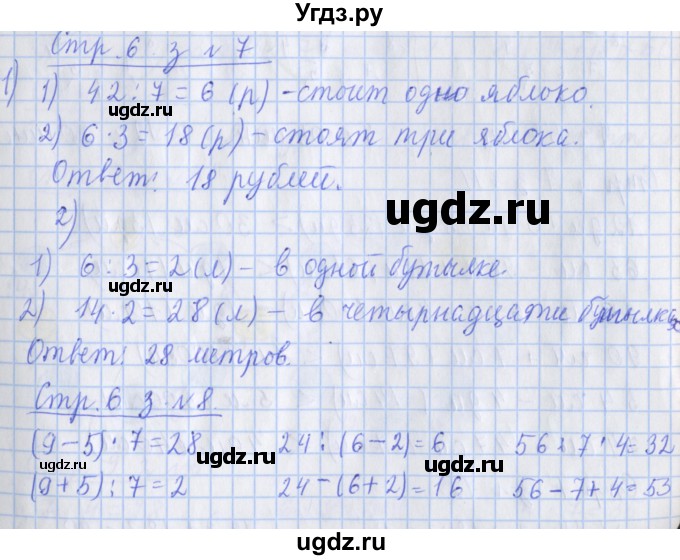 Угдз.ру
Стр. 6 з № 7
1)
1) 42 : 7 = 6 (р) - стоит одно яблоко.
ugdz.ru
2) 6 · 3 = 18 (р) - стоят три яблока.
Ответ: 18 рублей.
ugdz.ru
2)
1) 6 : 3 = 2 (л) - в одной бутылке.
ugdz.ru
2) 14 · 2 = 28 (л) - в четырнадцати бутылках
ugdz.ru
Ответ: 28 метров.
Стр. 6 з. № 8.
(9 - 5) · 7 = 28 24 : (6 - 2) = 6 56 : 7 · 4 = 32
ugdz.ru ugdz.ru
(9 + 5) : 7 = 2 24 - (6 + 2) = 16 56 - 7 + 4 = 53
ugdz.ru